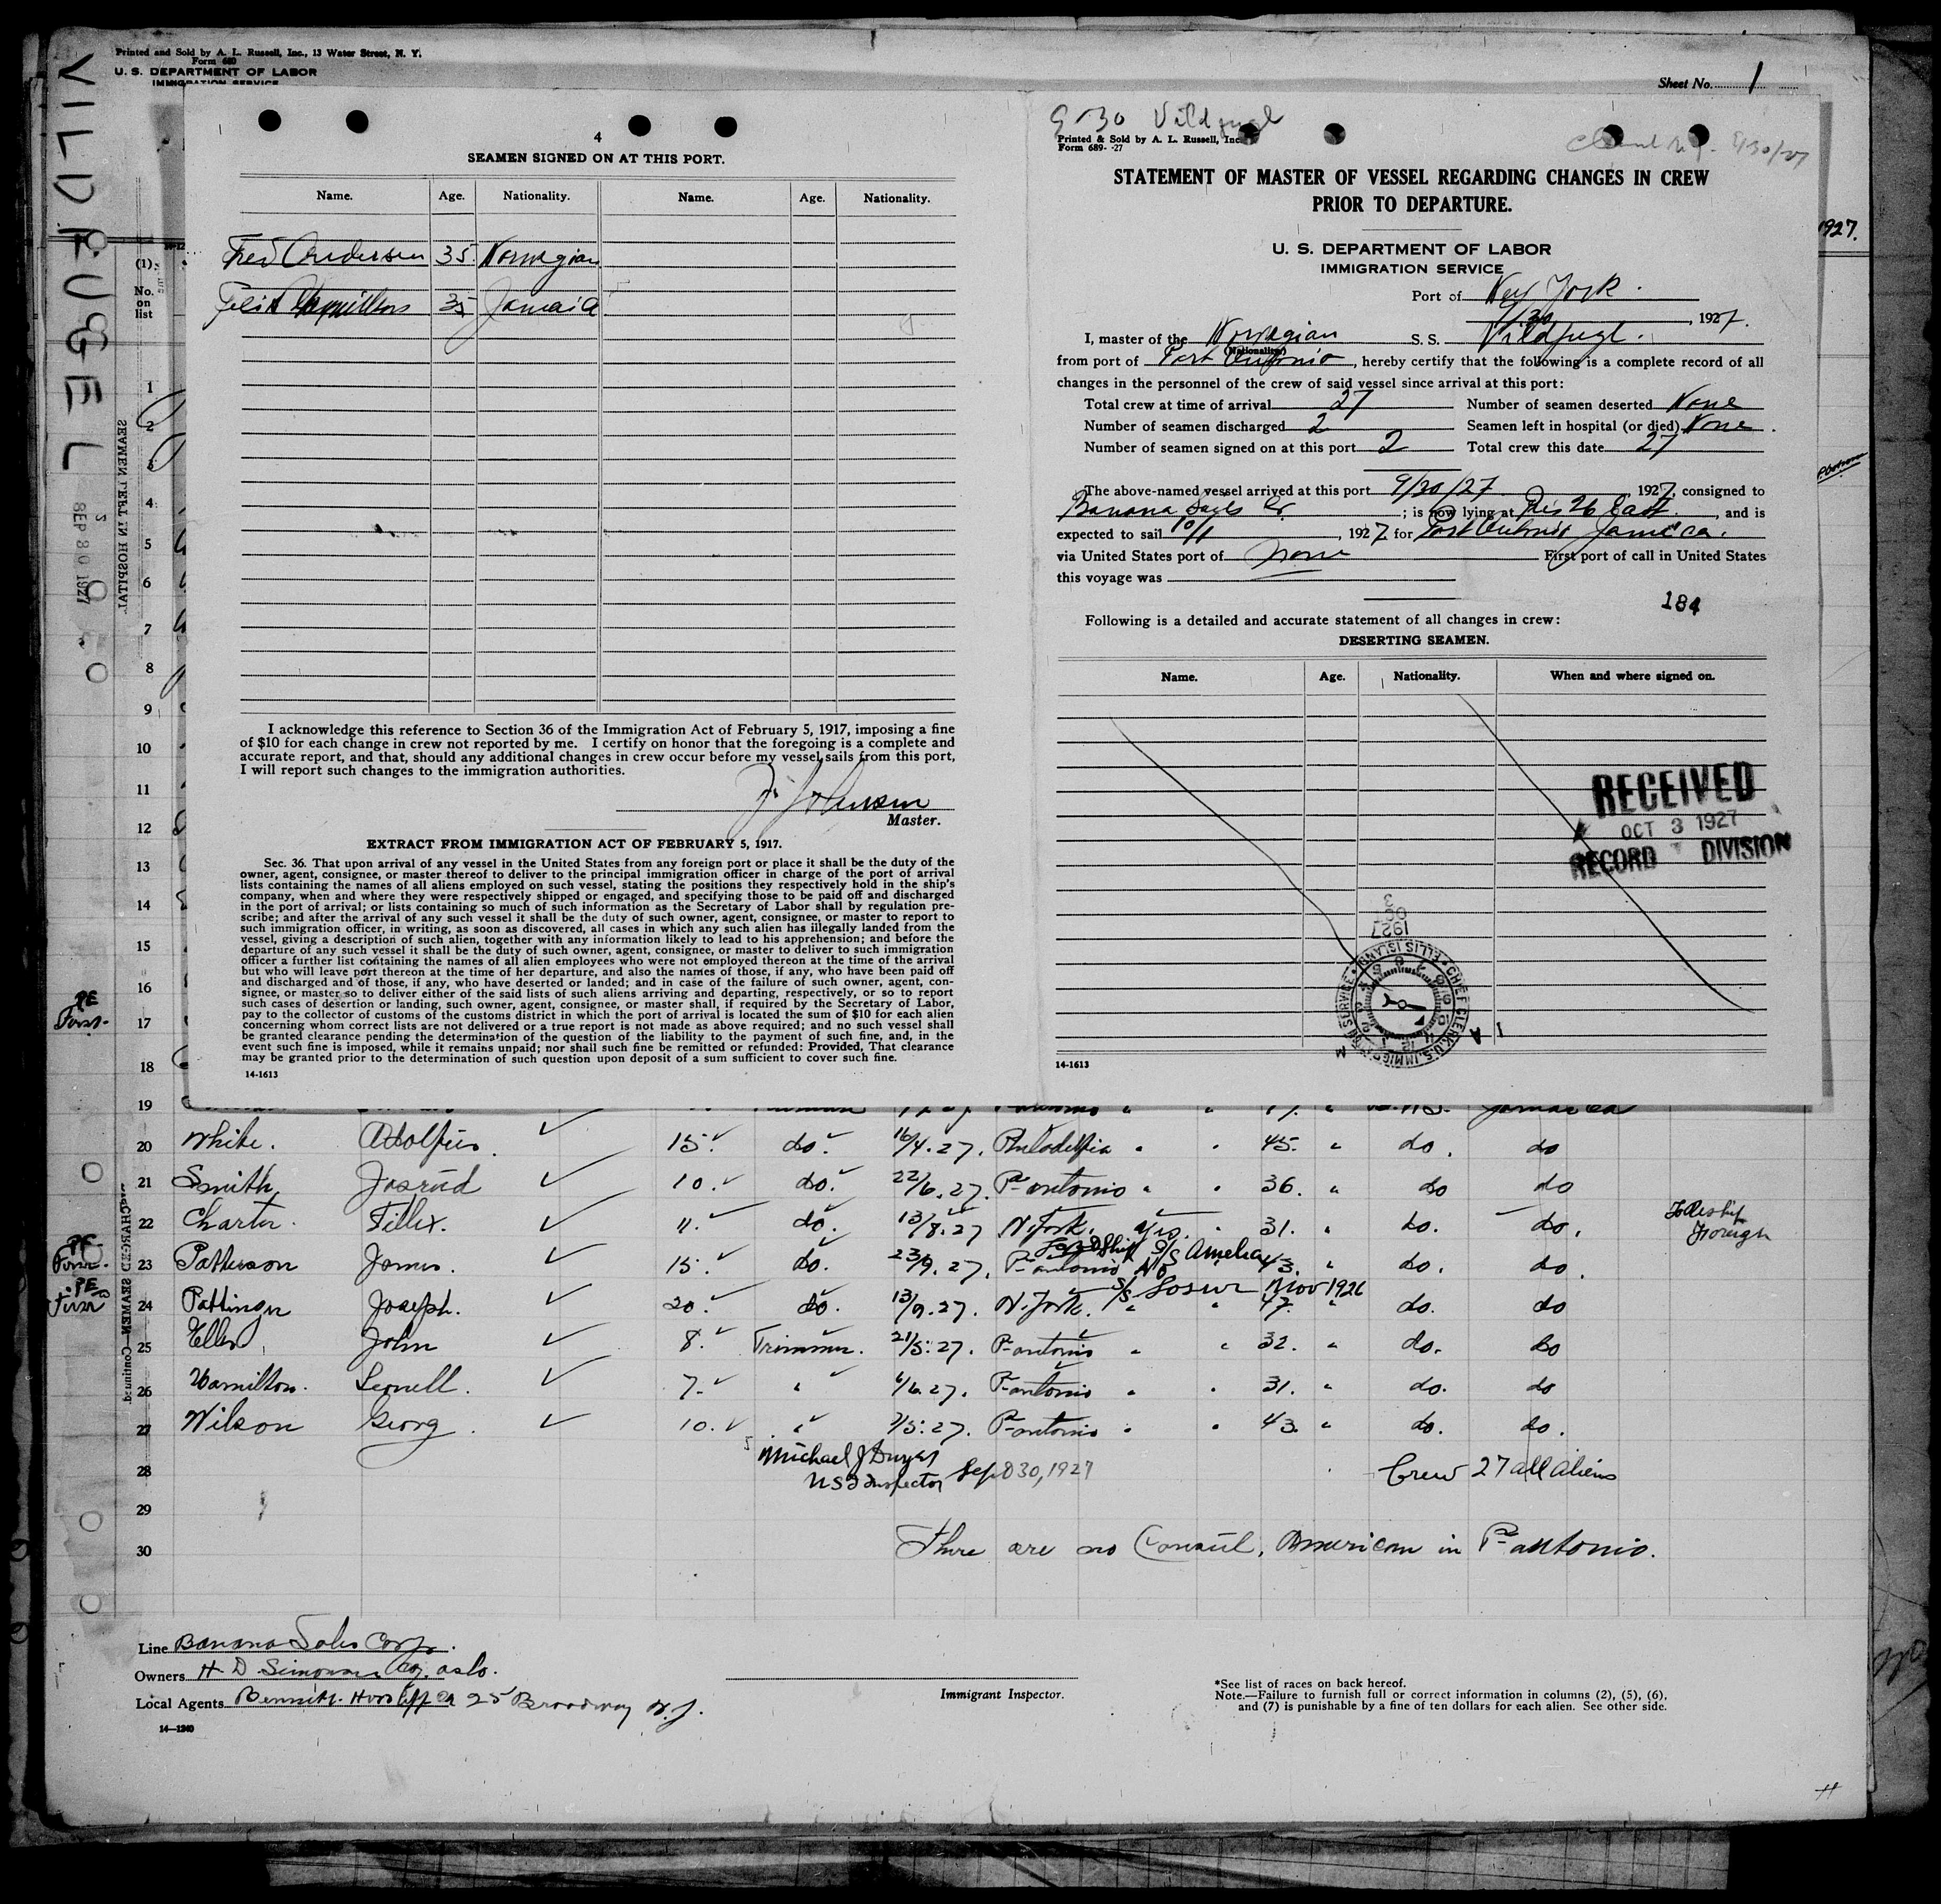 VILDFUGEL
SEP 30 1927
Printed and Sold by A. L. Russell, Inc., 13 Water Street, N. Y.
Form 680
U. S. DEPARTMENT OF LABOR
IMMIGRATION SERVICE
Sheet No. 1
1927.
(1)
No.
on
list
SEAMEN LEFT IN HOSPITAL
4
SEAMEN SIGNED ON AT THIS PORT.
Name. Age. Nationality. Name. Age. Nationality.
Fred Andersen 35. Norwegian
35 Jamaica
I acknowledge this reference to Section 36 of the Immigration Act of February 5, 1917, imposing a fine
of $10 for each change in crew not reported by me. I certify on honor that the foregoing is a complete and
accurate report, and that, should any additional changes in crew occur before my vessel sails from this port,
I will report such changes to the immigration authorities.
Master.
EXTRACT FROM IMMIGRATION ACT OF FEBRUARY 5, 1917.
Sec. 36. That upon arrival of any vessel in the United States from any foreign port or place it shall be the duty of the
owner, agent, consignee, or master thereof to deliver to the principal immigration officer in charge of the port of arrival
lists containing the names of all aliens employed on such vessel, stating the positions they respectively hold in the ship's
company, when and where they were respectively shipped or engaged, and specifying those to be paid off and discharged
in the port of arrival; or lists containing so much of such information as the Secretary of Labor shall by regulation pre-
scribe; and after the arrival of any such vessel it shall be the duty of such owner, agent, consignee, or master to report to
such immigration officer, in writing, as soon as discovered, all cases in which any such alien has illegally landed from the
vessel, giving a description of such alien, together with any information likely to lead to his apprehension; and before the
departure of any such vessel it shall be the duty of such owner, agent, consignee, or master to deliver to such immigration
officer a further list containing the names of all alien employees who were not employed thereon at the time of the arrival
but who will leave port thereon at the time of her departure, and also the names of those, if any, who have been paid off
and discharged and of those, if any, who have deserted or landed; and in case of the failure of such owner, agent, con-
signee, or master so to deliver either of the said lists of such aliens arriving and departing, respectively, or so to report
such cases of desertion or landing, such owner, agent, consignee, or master shall, if required by the Secretary of Labor,
pay to the collector of customs of the customs district in which the port of arrival is located the sum of $10 for each alien
concerning whom correct lists are not delivered or a true report is not made as above required; and no such vessel shall
be granted clearance pending the determination of the question of the liability to the payment of such fine, and, in the
event such fine is imposed, while it remains unpaid; nor shall such fine be remitted or refunded: Provided, That clearance
may be granted prior to the determination of such question upon deposit of a sum sufficient to cover such fine.
14-1613
9-30 Vildfugl
Printed & Sold by A. L. Russell, Inc
Form 689- -27
9/30/27
STATEMENT OF MASTER OF VESSEL REGARDING CHANGES IN CREW
PRIOR TO DEPARTURE.
U. S. DEPARTMENT OF LABOR
IMMIGRATION SERVICE
Port of New York.
9/30, 1927.
I, master of the Norwegian S. S. Vildfugl.
(Nationality)
from port of Port Antonio, hereby certify that the following is a complete record of all
changes in the personnel of the crew of said vessel since arrival at this port:
Total crew at time of arrival 27 Number of seamen deserted None
Number of seamen discharged 2 Seamen left in hospital (or died) None.
Number of seamen signed on at this port 2 Total crew this date 27
The above-named vessel arrived at this port 9/30/27, 1927, consigned to
Banana Sales Co; is now lying at Pier 26 East, and is
expected to sail 10/1, 1927 for Port Antonio Jamaica.
via United States port of None First port of call in United States
this voyage was
184
Following is a detailed and accurate statement of all changes in crew:
DESERTING SEAMEN.
Name. Age. Nationality. When and where signed on.
RECEIVED
OCT 3 1927
RECORD DIVISION
1927
OCT
3
CHIEF CLERK, U.S. IMMIGRATION SERVICE ELLIS ISLAND
14-1613
1
2
3
4
5
6
7
8
9
10
11
12
13
14
15
16
17
18
19 Jamaica
20 White. Adolfus. 15. do. 16/4.27. Philadelfia " " 45. " do. do
21 Smith 10. do. 22/6.27. P-antonio " " 36. " do do
22 Charter. Fillix. 11. do. 13/8.27 N.York. yes. " 31. " do. do. Foreign
23 Patterson James. 15. do. 23/9.27. P-antonio No S/S Amelia 43. " do. do.
24 Pattinger Joseph. 20. do. 13/9.27. N.York. Nov 1926 47. " do. do
25 John 8. Trimmer. 21/5.27. P-antonio " " 32. " do. do
26 Hamilton. 7. " 1/6.27. P-antonio " " 31. " do. do
27 Wilson Georg. 10. " 7/5.27. P-antonio " " 43. " do. do.
DISCHARGED SEAMEN—Continued
28 Michael J Dwyer Sep 30, 1927 Crew 27 all aliens
US I Inspector
29
30 There are no Consul, American in P-antonio.
Line Banana Sales Corp.
Owners H. D Simonsen Co. Oslo.
Local Agents 25 Broadway N.Y.
14—1240
Immigrant Inspector.
*See list of races on back hereof.
Note.—Failure to furnish full or correct information in columns (2), (5), (6),
and (7) is punishable by a fine of ten dollars for each alien. See other side.